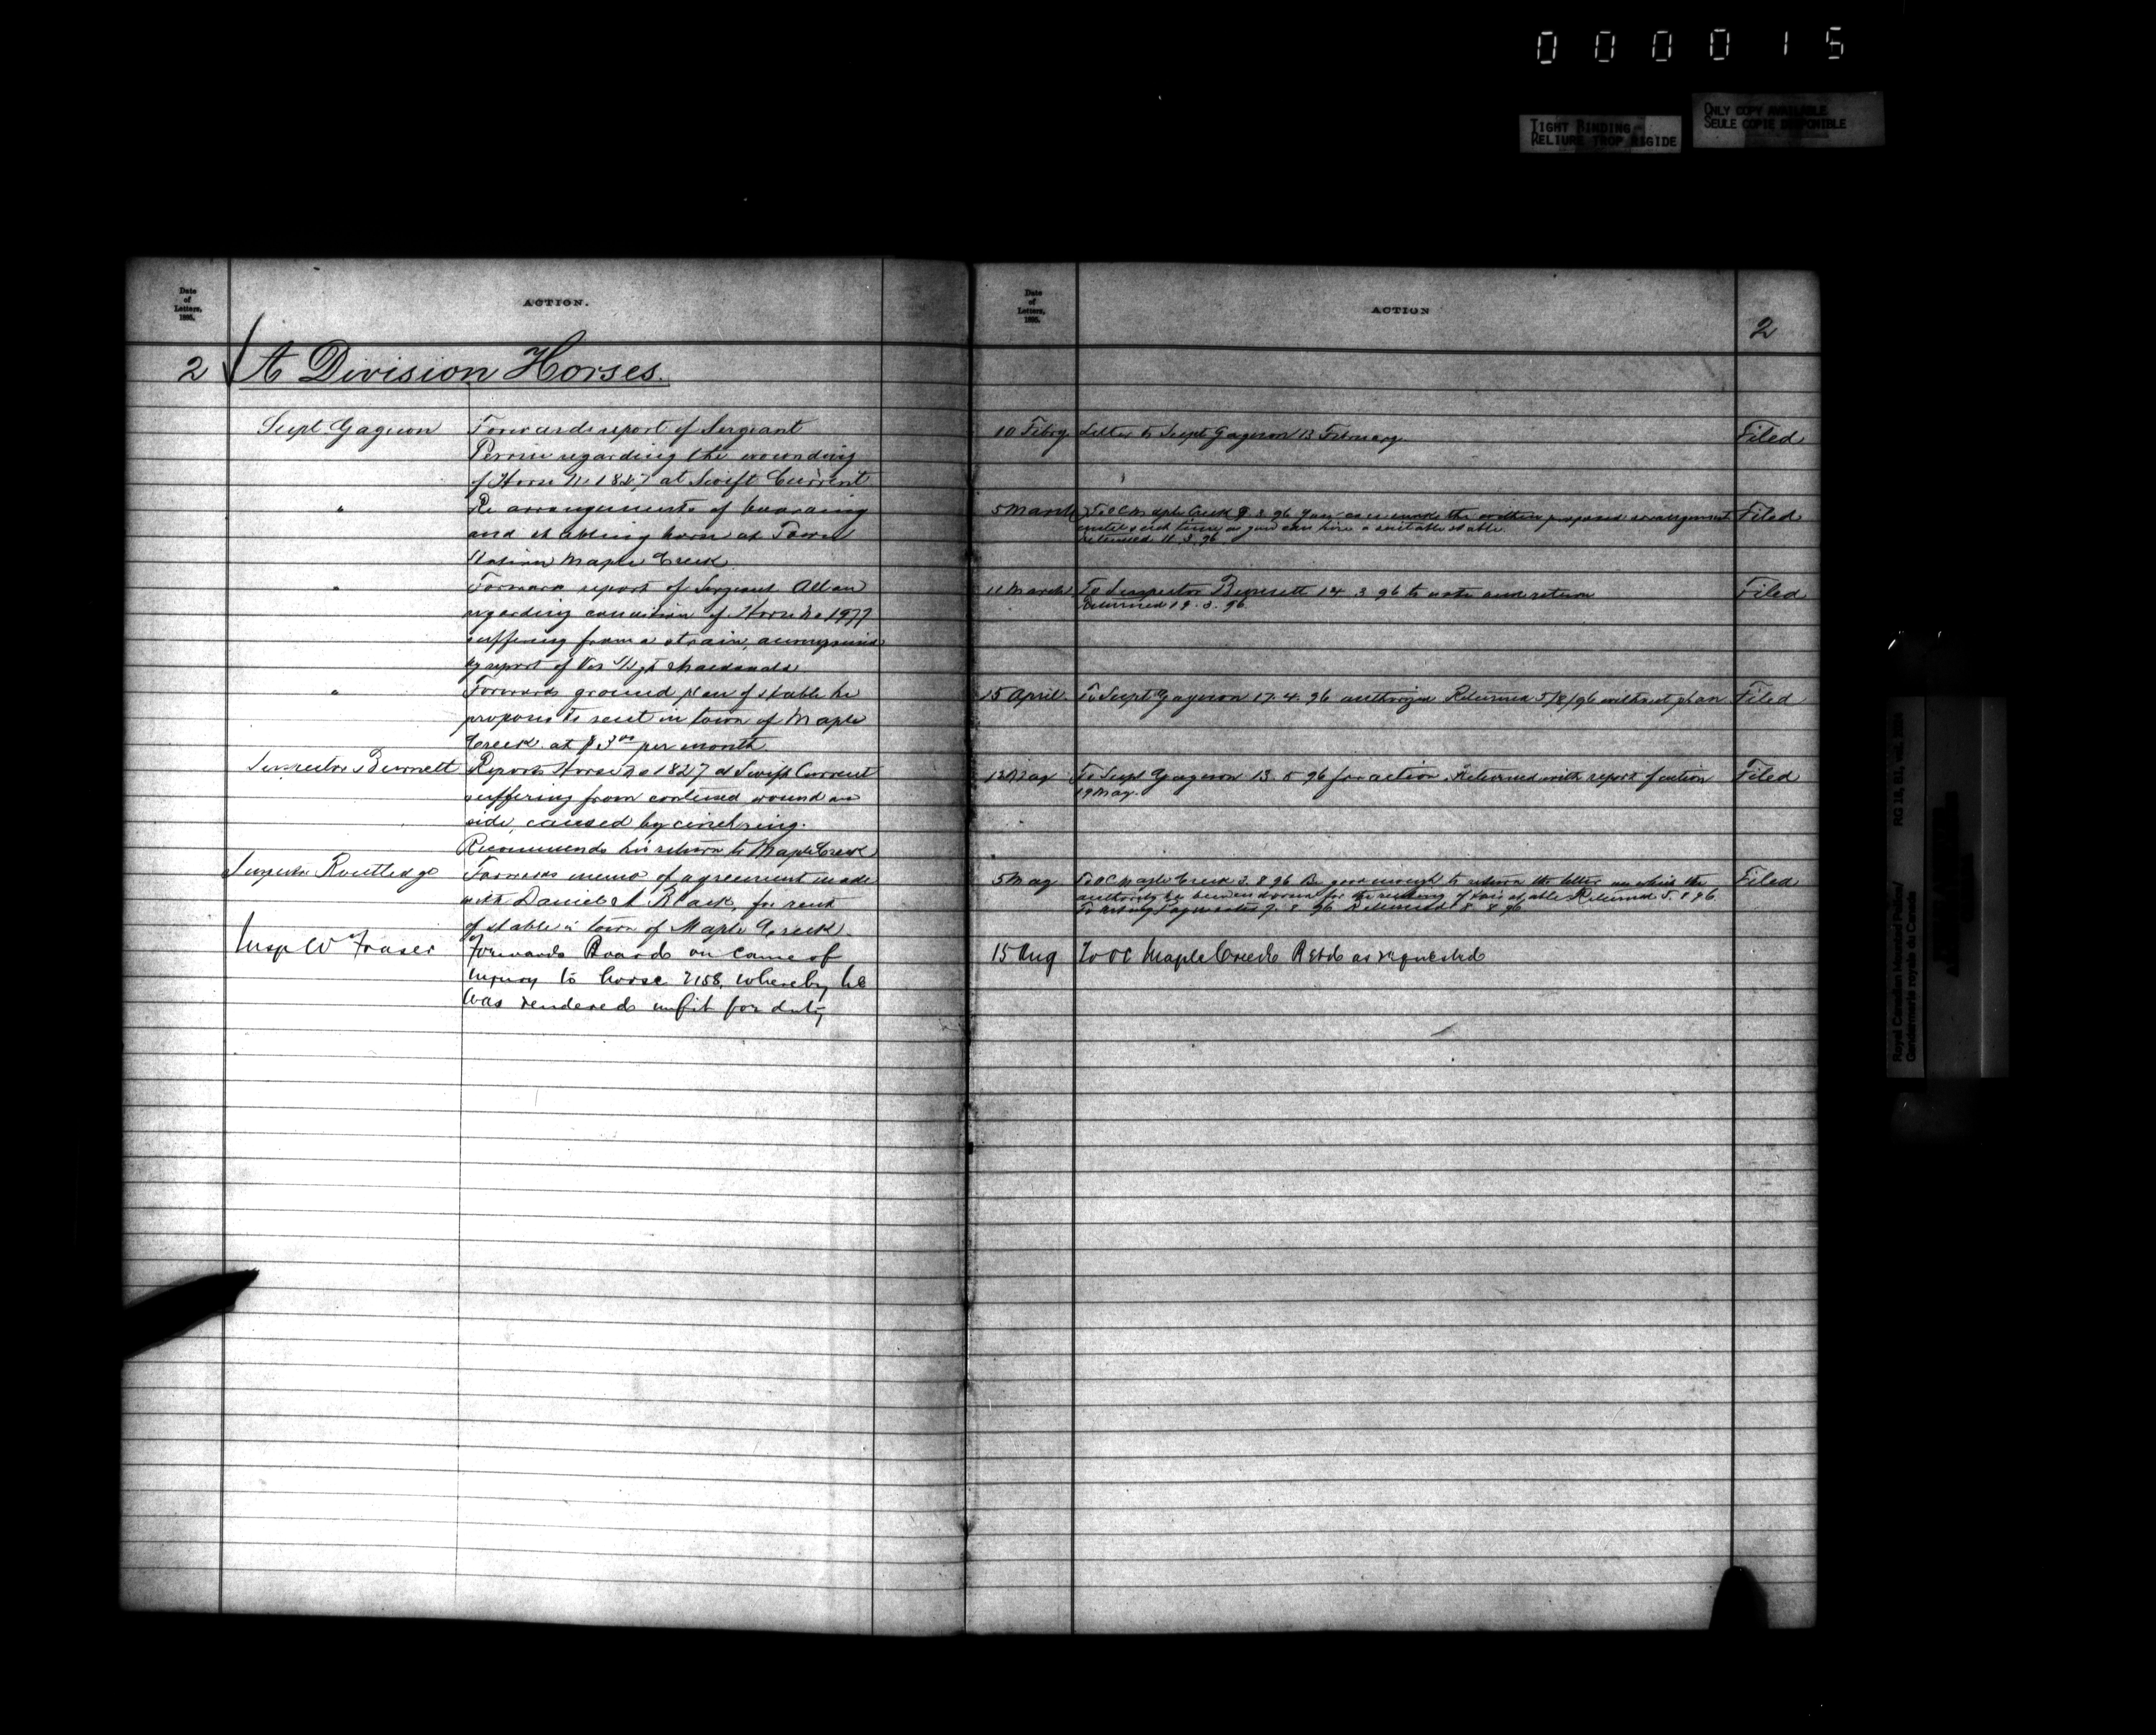 000015
TIGHT BINDING
RELIURE TROP RIGIDE
ONLY COPY AVAILABLE
SEULE COPIE DISPONIBLE
Date
of
Letters,
1895.
ACTION.
2 A Division Horses.
Supt Gagnon Forwards report of Sergeant
regarding the wounding
of Horse No 1827 at Swift Current
" Re arrangements of boarding
and stabling horse at Town
Station Maple Creek
" Forwards report of Sergeant Allan
regarding condition of Horse No 1977
suffering from a strain,
by report of Vet
" Forwards ground plan of stable he
proposes to rent in town of Maple
Creek at $3 00 per month
Inspector Burnett Reports Horse No 1827 at Swift Current
suffering from contused wound on
side, caused by cinch ring.
Recommends his return to Maple Creek
Inspector Routledge Forwards memo of agreement made
with Daniel Black, for rent
of stable in town of Maple Creek
Insp W Fraser Forwards Board on cause of
injury to horse 2158, whereby he
was rendered unfit for duty
Date
of
Letters,
1895.
ACTION
2
10 Febry Letter to Supt Gagnon 13 February Filed
5 March To OC Maple Creek 9 3 96 You can make the within proposed arrangement Filed
until such time as you can hire a suitable stable.
returned 11.3.96
11 March To Inspector Burnett 14 3 96 to note and return Filed
Returned 19.3.96
15 April To Supt Gagnon 17.4.96 Returned 5/8/96 without plan Filed
13 May To Supt Gagnon 13.5 96 for action. Returned with report of action Filed
19 May.
5 May To OC Maple Creek 3.8 96 Be good enough to return the letter on which the Filed
authority for the renting of this stable Returned 5.8 96
To 7.8 96 Returned 8.8 96
15 Aug To OC Maple Creek Retd as requested
Royal Canadian Mounted Police/
Gendarmerie royale du Canada
RG 18, B1, vol.